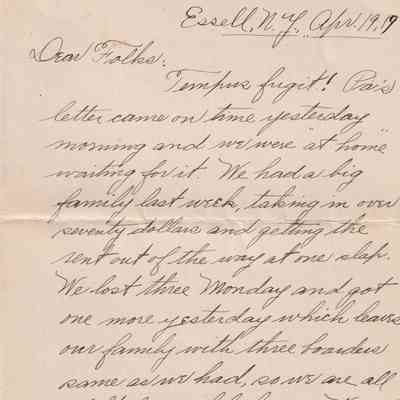 Essell, N.Y., Apr. 19, 19
Dear Folks:
Tempus fugit! Pa's
letter came on time yesterday
morning and we were "at home"
waiting for it. We had a big
family last week, taking in over
seventy dollars and getting the
rent out of the way at one slap.
We lost three Monday and got
one more yesterday which leaves
our family with three boarders
same as we had, so we are all